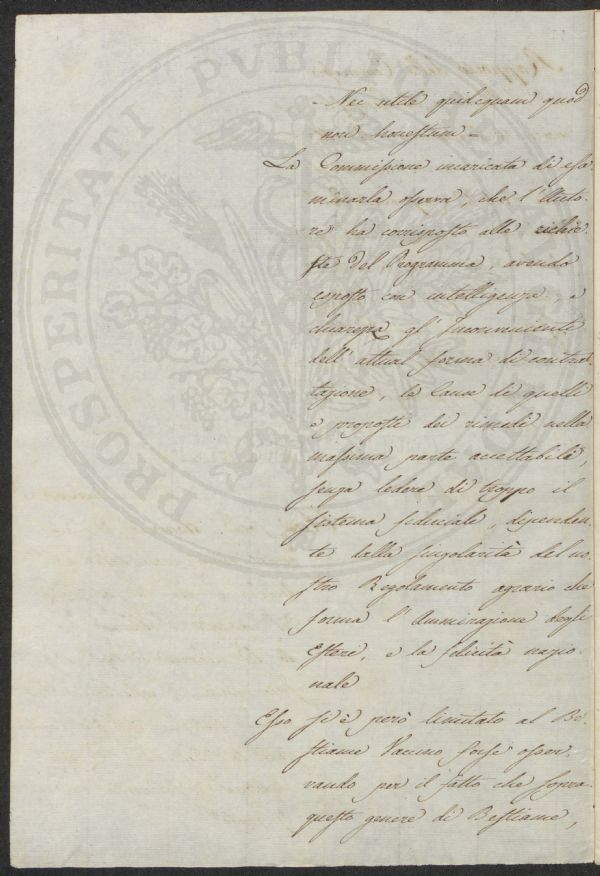 - Nec utile quidquam quod
non honestum -
La Commissione incaricata di esa-
minarla osserva, che l'Auto-
re ha corrisposto alle richie-
ste del Programma, avendo
esposto con intelligenza, e
chiarezza gl'Inconvenienti
dell'attual forma di contrat-
tazione, le Cause di quelli
e proposte dei rimedi nella
massima parte accettabili,
senza ledere di troppo il
sistema fiduciale, dipenden-
te dalla singolarità del no-
stro Regolamento agrario che
forma l'Ammirazione degli
Esteri, e la felicità nazio-
nale
Esso si è però limitato al Be-
stiame Vaccino forse osser-
vando per il fatto che sopra
questo genere di Bestiame,
PROSPERITATI PVBLICAE